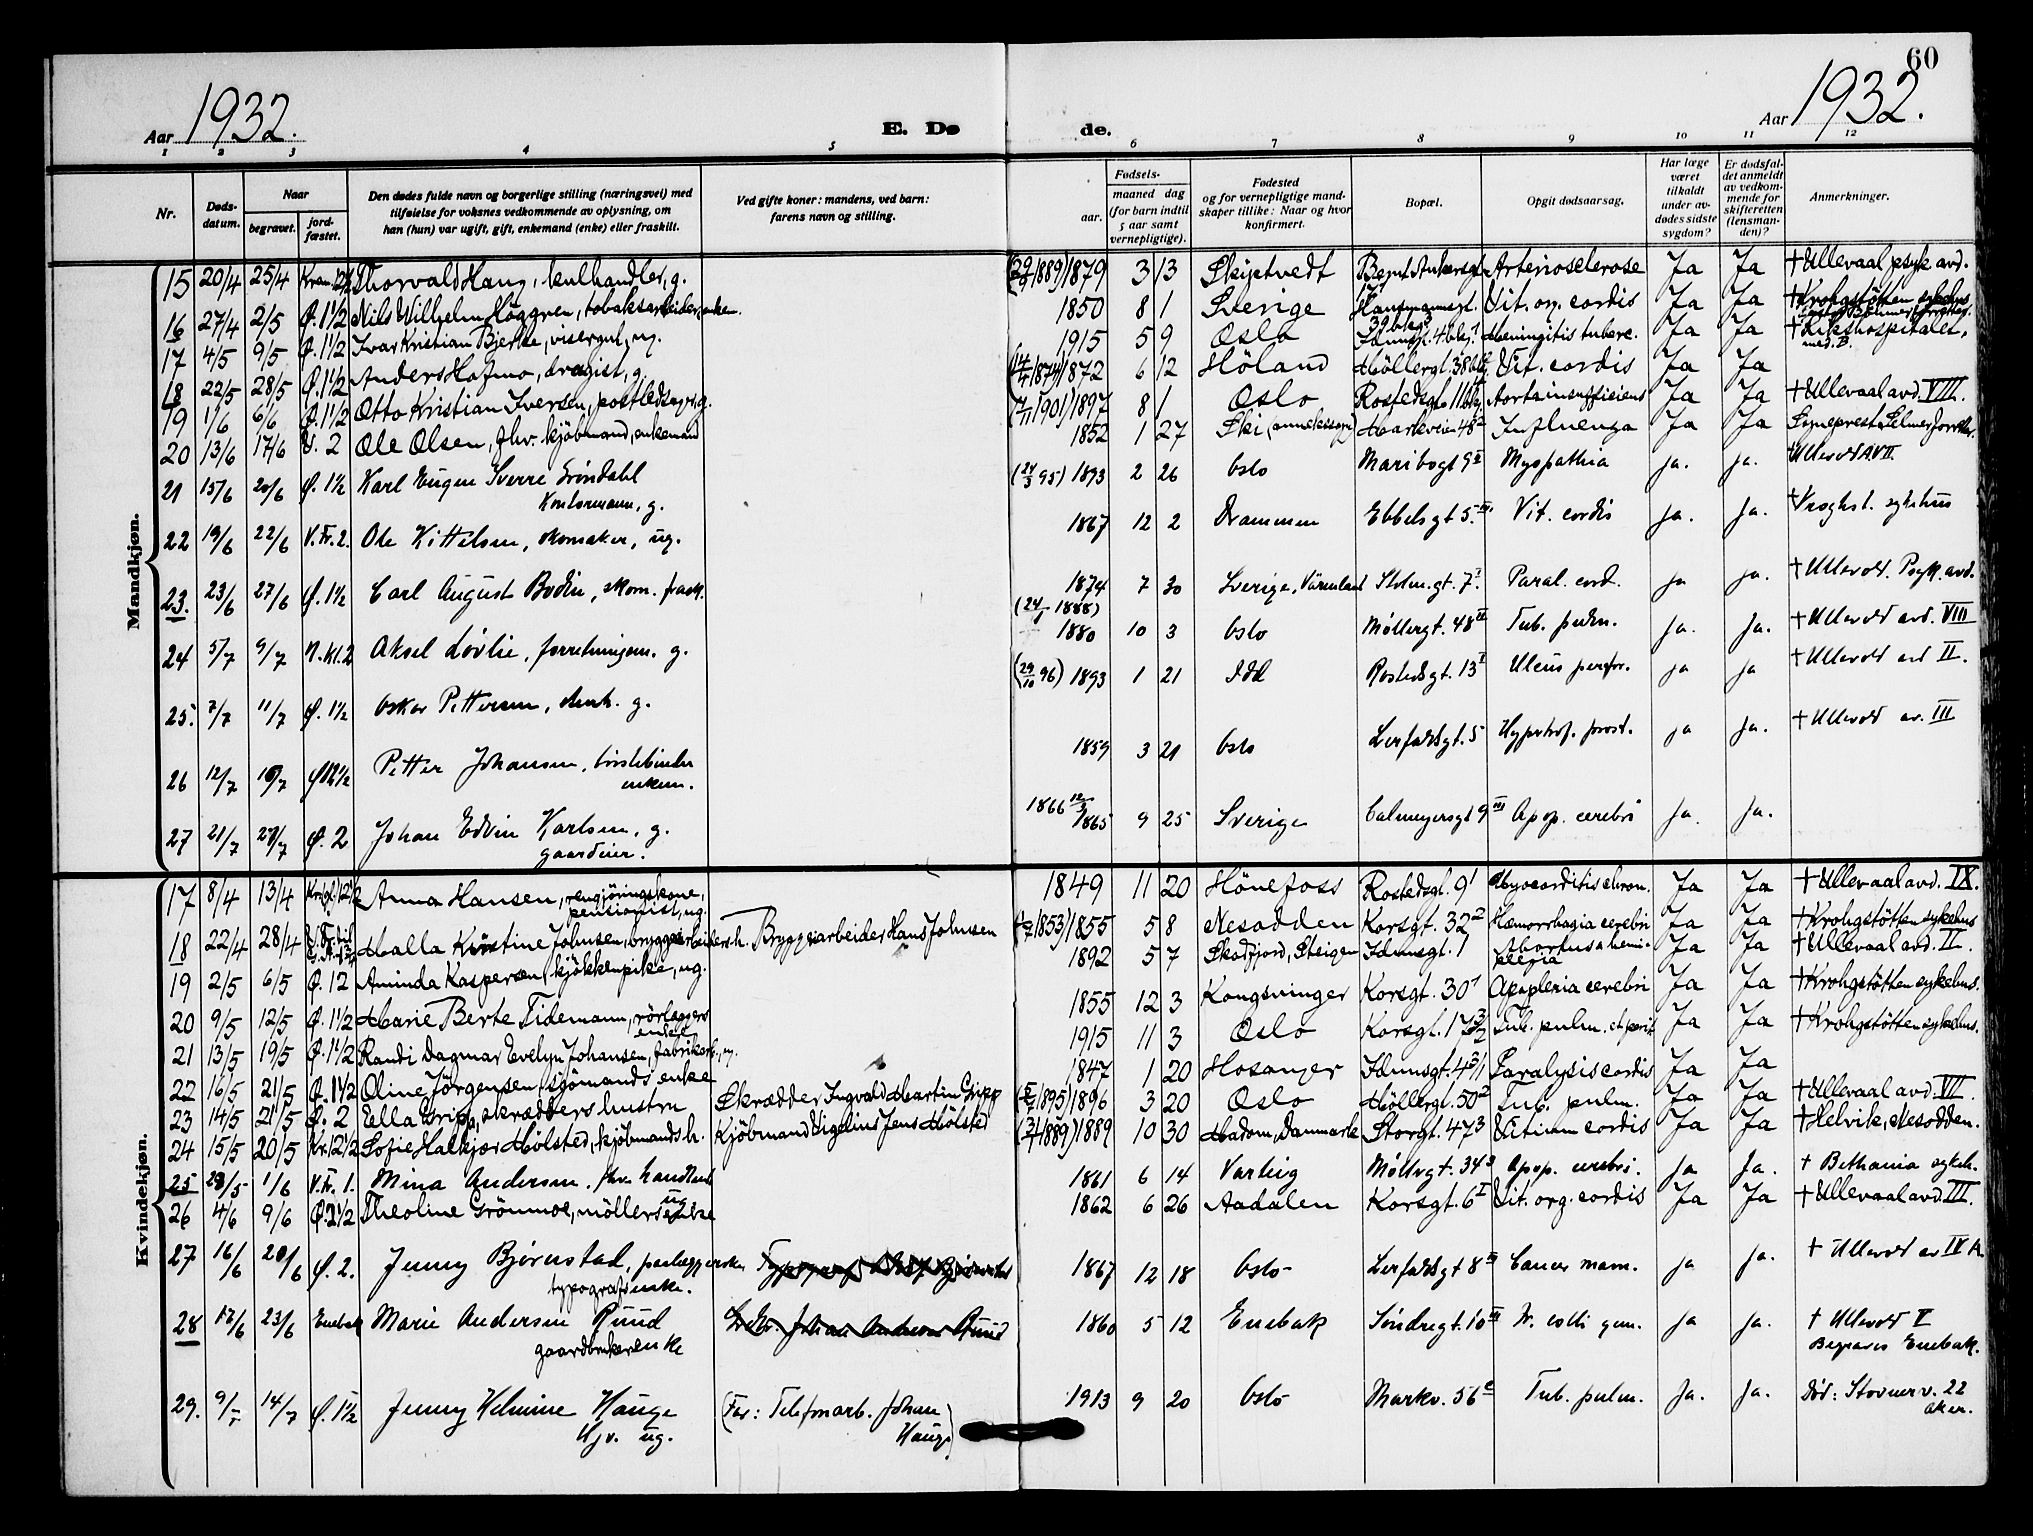 60
Aar 1932.
E. Dø de.
Aar 1932.
1 2 3 4 5 6 7 8 9 10 11 12
Nr.
Døds-
datum.
Naar
begravet.
jord-
fæstet.
Den dødes fulde navn og borgerlige stilling (næringsvei) med
tilføielse for voksnes vedkommende av oplysning, om
han (hun) var ugift, gift, enkemand (enke) eller fraskilt.
Ved gifte koner: mandens, ved barn:
farens navn og stilling.
Fødsels-
aar.
maaned dag
(for barn indtil
5 aar samt
vernepligtige).
Fødested
og for vernepligtige mand-
skaper tillike: Naar og hvor
konfirmert.
Bopæl.
Opgit dødsaarsag.
Har læge
været
tilkaldt
under av-
dødes sidste
sygdom?
Er dødsfal-
det anmeldt
av vedkom-
mende for
skifteretten
(lensman-
den)?
Anmerkninger.
Mandkjøn.
15 20/4 25/4 Thorvald Haug, kulhandler, g. 1879 3 13 Skiptvedt Arteriosclerose Ja Ja † Ullevaal psyk avd.
16 27/4 2/5 Ø. 1 1/2 Nils Wilhelm Höggren, tobaksarbeider, enkem. 1850 8 1 Sverige Hausmannsgt. Vit. org. cordis Ja Ja † Krohgstötten sykehus
17 4/5 9/5 Ø. 1 1/2 Ivar Kristian Bjerke, visergut, ug. 1915 5 9 Oslo Meningitis tuberc. Ja Ja † Rikshospitalet, med. B.
18 22/5 28/5 Ø. 1 1/2 Anders Hofmo, dragist, g. 1872 6 12 Höland Möllergt. 38 Vit. cordis Ja Ja
19 1/6 6/6 Ø. 1 1/2 Otto Kristian Iversen, postledsager, g. (7/11 1901) 1897 8 1 Oslo Rostedsgt. 11 Aortainsufficiens Ja Ja † Ullevaal avd. VIII.
20 13/6 17/6 V. 2 Ole Olsen, fhv. kjöbmand, enkemand 1852 1 27 Ski (annekssogn) Markveien 48 Influenza Ja Ja Sogneprest Selmer forretter.
21 15/6 20/6 Ø. 1 1/2 Karl Eugen Sverre Gröndahl
Kontormann, g. 1893 2 26 Oslo Maribogt 9 II Myopathia ja. ja. Ullevål A VII.
22 19/6 22/6 V. Fr. 2. Ole Kittelsen, skomaker, ug. 1867 12 2 Drammen Ebbelsgt 5. III Vit. cordis ja. ja. † Kroghst. sykehus
23. 23/6 27/6 Ø. 1 1/2 Carl August Bodin, skom. frask. 1874 7 30 Sverige, Värmland Stolm. gt. 7 I Paral. cord. ja ja. † Ullevål. Psyk. avd.
24 5/7 9/7 N. kl. 2 Aksel Løvlie, forretningsm. g. (24/1 1888) 1880 10 3 Oslo Møllergt. 48 II Tub. pulm. ja. ja. † Ullevål avd. VIII
25. 7/7 11/7 Ø. 1 1/2 Oskar Pettersen, g. (29/10 96) 1893 1 21 Idd Rostedsgt. 13 I Ulcus perfor. ja ja † Ullevål avd II.
26 12/7 Petter Johansen, børstebinder
enkem. 1859 3 21 Oslo Lerfaldsgt. 5 Hypertrof. prost. ja ja. † Ullevål av. III
27 21/7 Ø. 2 Johan Edvin Karlsen, g.
gaardeier. 1865 9 25 Sverige Calmeyersgt 9 III Apop. cerebri ja. ja.
Kvindekjøn.
17 8/4 13/4 Anna Hansen, rengjöringskone,
pensionist, ug. 1849 11 20 Hönefoss Rostedsgt. 9 1 Myocarditis chron. Ja Ja † Ullevaal avd. IX.
18 22/4 28/4 Malla Kirstine Johnsen, bryggearbeidersh. Bryggearbeider Hans Johnsen 1855 5 8 Nesodden Korsgt. 32 2 Hæmorrhagia cerebri Ja Ja † Krohgstötten sykehus
19 2/5 6/5 Ø. 12 Aminda Kaspersen, kjökkenpike, ug. 1892 5 7 Skotfjord, Steigen Idunsgt. 1 Abortus & hemi-
plegia Ja Ja † Ullevaal avd. II.
20 9/5 12/5 Ø. 1 1/2 Marie Berte Tidemann, rörlæggers
enke 1855 12 3 Kongsvinger Korsgt. 30 1 Apoplexia cerebri Ja Ja † Krohgstötten sykehus.
21 13/5 19/5 Ø. 1 1/2 Randi Dagmar Evelyn Johansen, fabrikarb., ug. 1915 11 3 Oslo Korsgt. 17 Tub. pulm. et perit Ja Ja † Krohgstötten sykehus.
22 16/5 21/5 Ø. 1 1/2 Oline Jörgensen, sjömands enke 1847 1 20 Hosanger Idunsgt. 4 Paralysis cordis Ja Ja
23 14/5 21/5 Ø. 2 Ella Gripp, skrædders hustru Skrædder Ingvald Martin Gripp 1896 3 20 Oslo Möllergt. 50 2 Tub. pulm. Ja Ja † Ullevaal avd. VII.
24 15/5 20/5 Kr. 12 1/2 Sofie Halkjær Mölsted, kjöbmands h. Kjöbmand Vigelius Jens Mölsted 1889 10 30 Madom, Danmark Storgt. 47 3 Vitium cordis Ja Ja † Helvik, Nesodden.
25 28/5 1/6 V. Fr. 1. Mina Andersen, fhv. handlende
ug. 1861 6 14 Varteig Møllergt. 34 3 Apop. cerebri. ja Ja. † Bethania sykeh.
26 4/6 9/6 Theoline Grönmoe, möllers enke 1862 6 26 Aadalen Korsgt. 6 I Vit. org. cordis Ja Ja † Ullevaal avd. III.
27 16/6 20/6 Ø. 2. Jenny Bjørnstad,
typografenke. 1867 12 18 Oslo Lerfaldsgt 8 III Cancer mam. ja ja. † Ullevål av IV A.
28 17/6 23/6 Enebak Marie Andersen Ruud
gaardbrukerenke Johan Andersen Ruud 1860 5 12 Enebak Søndregt. 10 III Fr. colli ja ja. † Ullevål V
Begraves Enebak.
29. 9/7 14/7 Ø. 1 1/2 Jenny Helmine Hauge
Hjv. ug. (Far: Telefonarb. Johan
Hauge) 1913 9 20 Oslo Markv. 56 c Tub. pulm. Ja. Ja. Død: Stovnerv. 22
Aker.